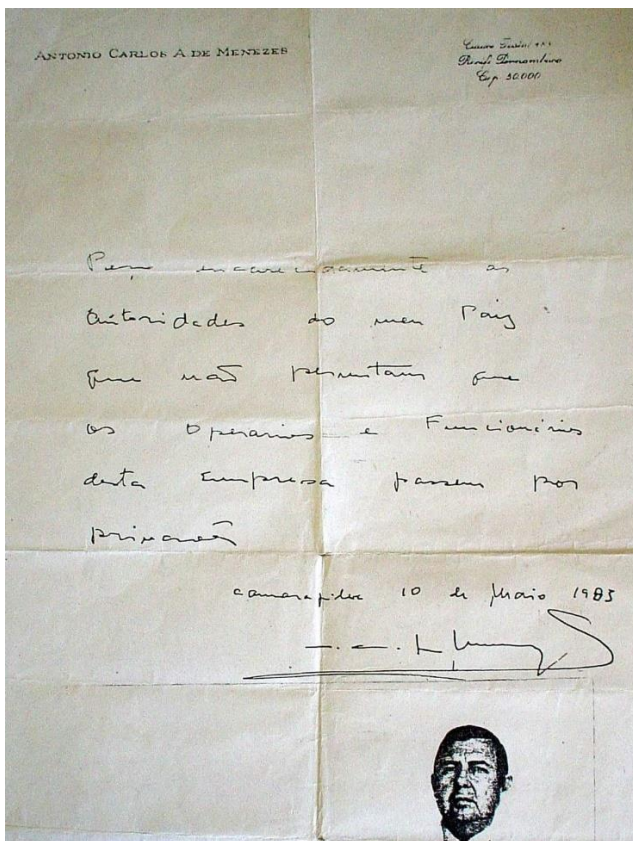 ANTONIO CARLOS A. DE MENEZES
Recife Pernambuco
Cep 50.000
Peço encarecidamente as
Autoridades do meu Paiz
que não permitam que
os Operarios e Funcionários
desta Empresa passem por
privações
10 de Maio 1983